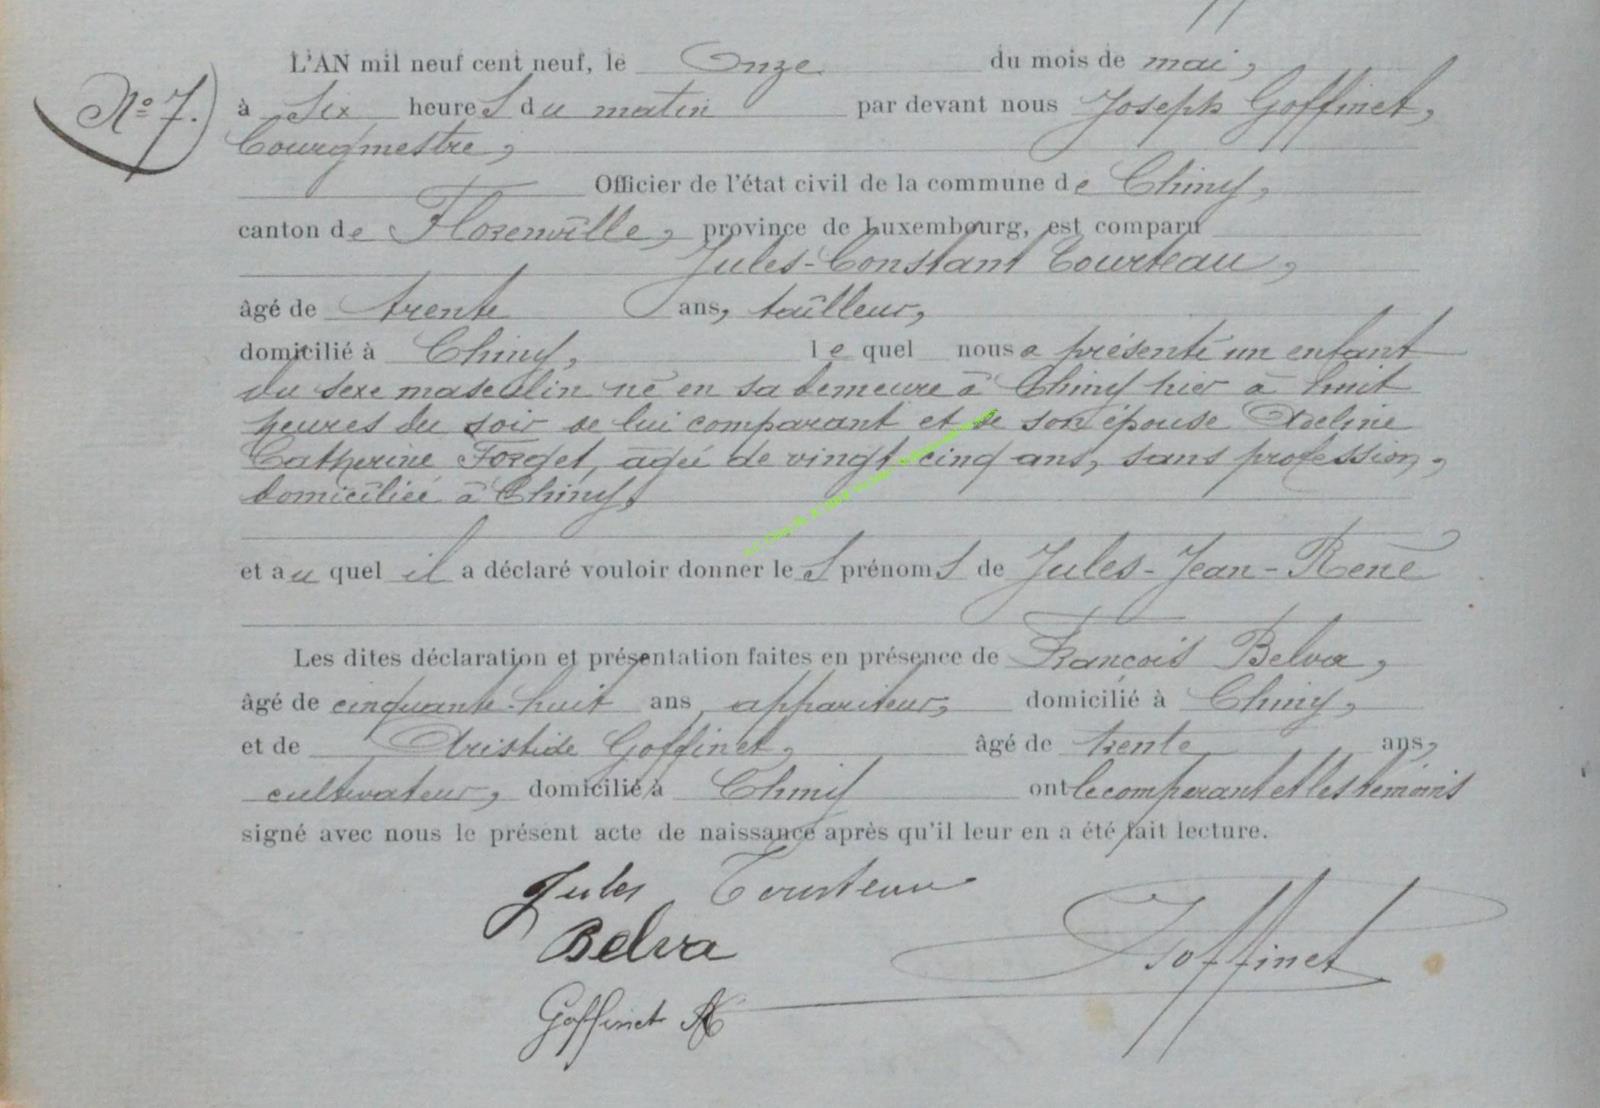 N° 7.
L'AN mil neuf cent neuf, le Onze du mois de mai,
à Six heures du matin par devant nous Joseph Goffinet,
Bourgmestre,
Officier de l'état civil de la commune de Chiny,
canton de Florenville, province de Luxembourg, est comparu
Jules-Constant Tourteau,
âgé de trente ans, tailleur,
domicilié à Chiny, lequel nous a présenté un enfant
du sexe masculin né en sa demeure à Chiny hier à huit
heures du soir de lui comparant et de son épouse Adeline
Catherine Forget, agée de vingt cinq ans, sans profession,
domiciliée à Chiny,
et auquel il a déclaré vouloir donner les prénoms de Jules-Jean-René
Les dites déclaration et présentation faites en présence de François Belva,
âgé de cinquante-huit ans, appariteur, domicilié à Chiny,
et de Aristide Goffinet, âgé de trente ans,
cultivateur, domicilié à Chiny ont le comparant et les témoins
signé avec nous le présent acte de naissance après qu'il leur en a été fait lecture.
Jules Tourteau
Belva
Goffinet
Goffinet A